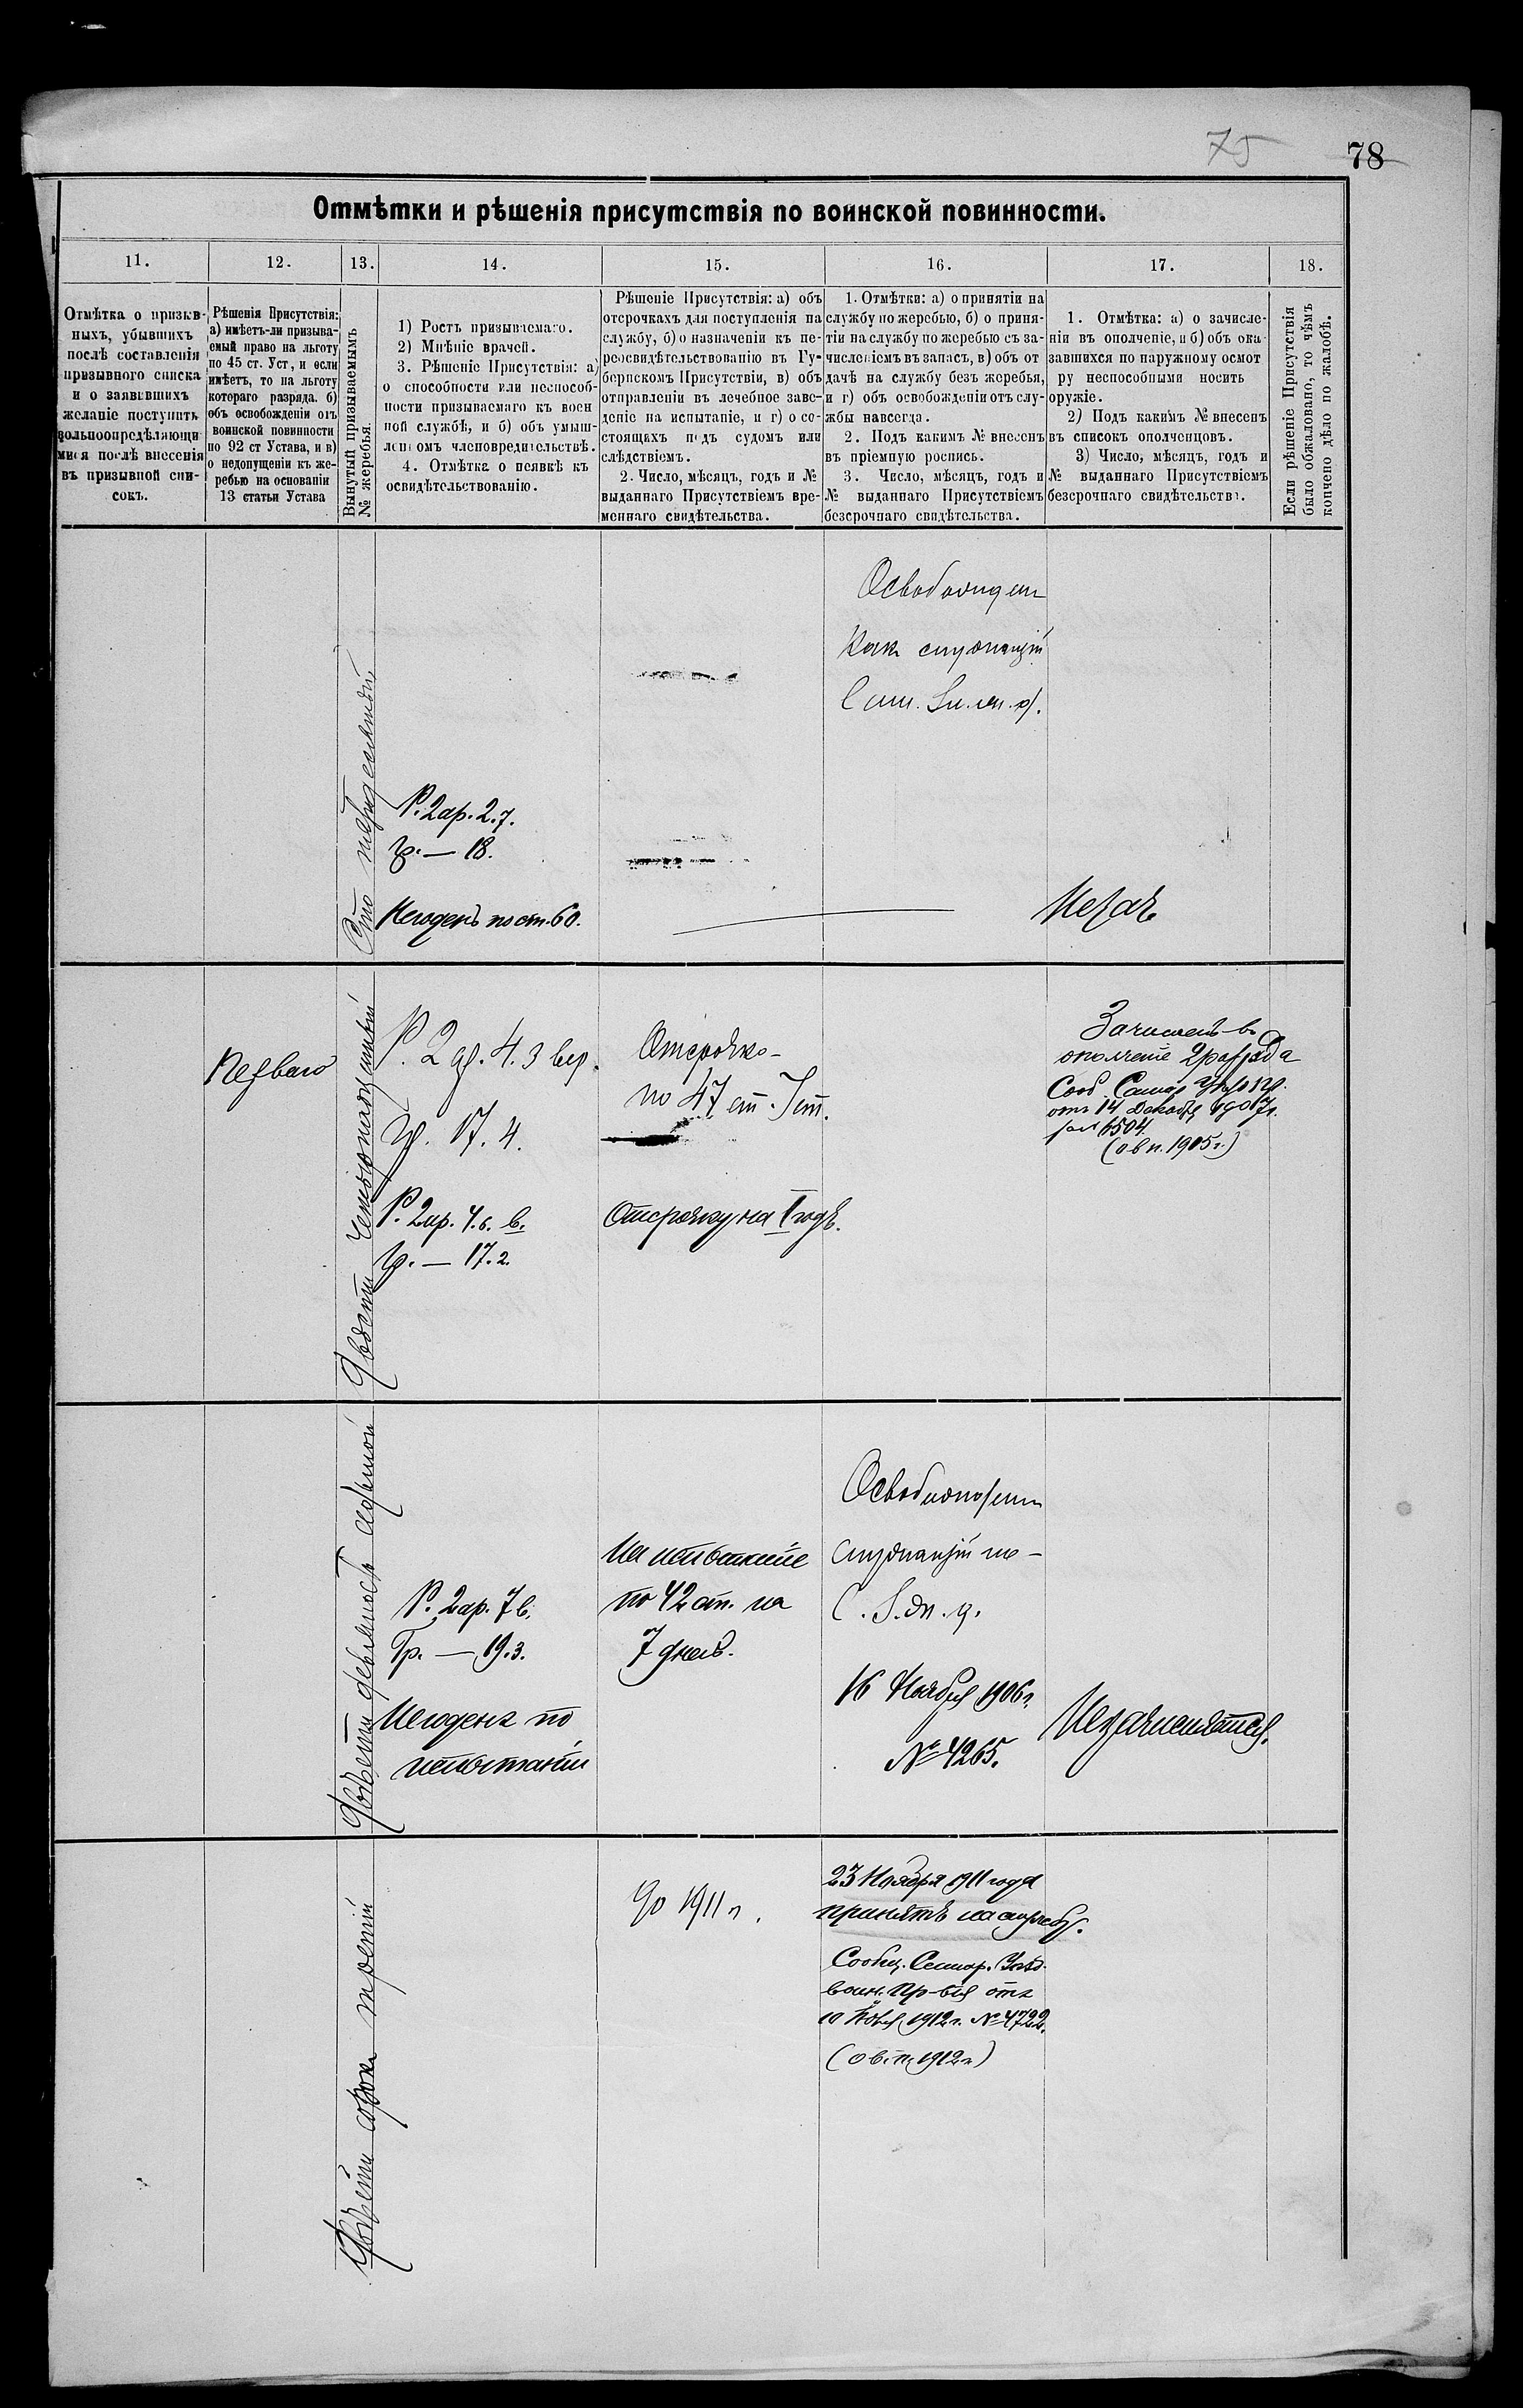 75
78
Отмѣтки и рѣшенія присутствія по воинской повинности.
11.
12.
13.
14.
15.
16.
17.
18.
Отмѣтка о призыв-
ныхъ, убывшихъ
послѣ составленія
призывного списка
и о заявившихъ
желаніе поступить
вольноопредѣляющи
мися послѣ внесенія
въ призывной спи-
сокъ.
Рѣшенія Присутствія:
а) имѣетъ-ли призыва-
емый право на льготу
по 45 ст. Уст, и если
имѣетъ, то на льготу
котораго разряда. б)
объ освобожденіи отъ
воинской повинности
по 92 ст Устава, и в)
о недопущеніи къ же-
ребью на основаніи
13 статьи Устава
Вынутый призываемымъ
№ жеребья.
1) Ростъ призываемаго.
2) Мнѣніе врачей.
3. Рѣшеніе Присутствія: а)
о способности или неспособ-
ности призываемаго къ воен
ной службѣ, и б) объ умыш-
ленномъ членовредительствѣ.
4. Отмѣтка о неявкѣ къ
освидѣтельствованію.
Рѣшеніе Присутствія: а) объ
отсрочкахъ для поступленія на
службу, б) о назначеніи къ пе-
реосвидѣтельствованію въ Гу-
бернскомъ Присутствіи, в) объ
отправленіи въ лечебное заве-
деніе на испытаніе, и г) о со-
стоящихъ подъ судомъ или
слѣдствіемъ.
2. Число, мѣсяцъ, годъ и №
выданнаго Присутствіемъ вре-
меннаго свидѣтельства.
1. Отмѣтки: а) о принятіи на
службу по жеребью, б) о приня-
тіи на службу по жеребью съ за-
численіемъ въ запасъ, в) объ от
дачѣ на службу безъ жеребья,
и г) объ освобожденіи отъ слу-
жбы навсегда.
2. Подъ какимъ № внесенъ
въ пріемную роспись.
3. Число, мѣсяцъ, годъ и
№ выданнаго Присутствіемъ
безсрочнаго свидѣтельства.
1. Отмѣтка: а) о зачисле-
ніи въ ополченіе, и б) объ ока-
завшихся по наружному осмот
ру неспособными носить
оружіе.
2) Подъ какимъ № внесенъ
въ списокъ ополченцовъ.
3) Число, мѣсяцъ, годъ и
№ выданнаго Присутствіемъ
безсрочнаго свидѣтельства.
Если рѣшеніе Присутствія
было обжаловано, то чѣмъ
кончено дѣло по жалобѣ.
Сто
Р. 2ар. 2.7.
Гр. — 18.
Негоденъ по ст. 60.
Какъ служащій
Перваго
Двѣсти
Р. 2 ар. 4. 3 вер.
Гр. 17. 4.
Р. 2ар. 4.6. в.
Гр. — 17.2.
Отсрочка
по 47 ст. Уст.
Отсрочку на I годъ.
Зачисленъ въ
ополченіе 2 разряда
от 14 Декабр 1907г.
за № 6504.
(о в п. 1905 г.)
Двѣсти девяносто
Р. 2ар. 7 в.
Гр. — 19.3.
Негоденъ по
испытаніи
На испытаніе
по 42 ст. на
7 дней.
16 Ноября 1906 г.
№ 4265.
Незачисляется.
Двѣсти сорокъ третій
До 1911 г.
23 Ноября 1911 года
принятъ на службу.
Сообщ. Самар. Уѣзд.
воин. Пр-вія отъ
№ 4722.
(о в. п. 1912 г.)